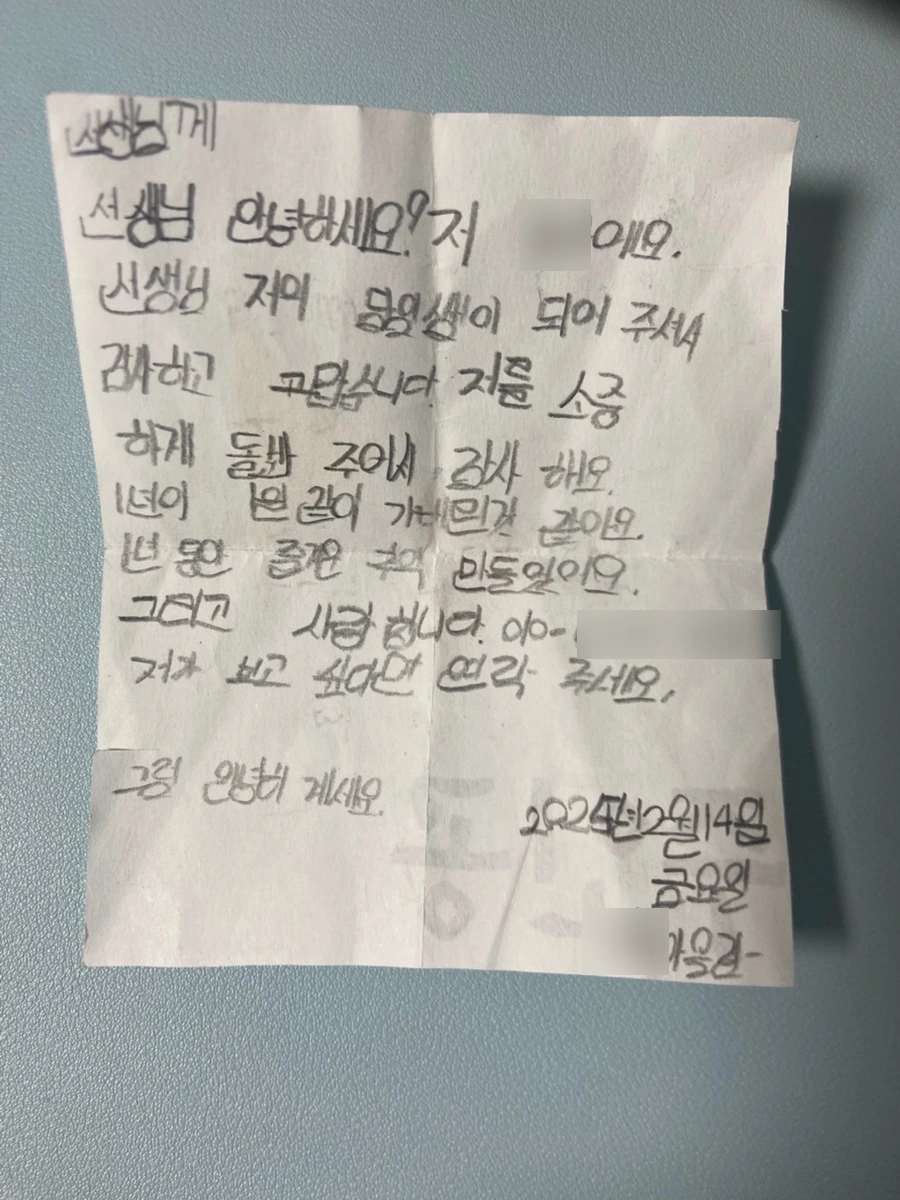 선생님께
선생님 안녕하세요? 저 이에요.
선생님 저의 담임쌤이 되어 주셔서
감사하고 고맙습니다. 저를 소중
하게 돌봐 주어서 감사 해요.
1년이 1일 같이 같아요.
1년 동안 즐거운 추억
그리고 사랑 합니다. 010-
저가 보고 싶다면 연락 주세요.
그럼 안녕히 계세요.
2025년 2월 14일
금요일
올림-